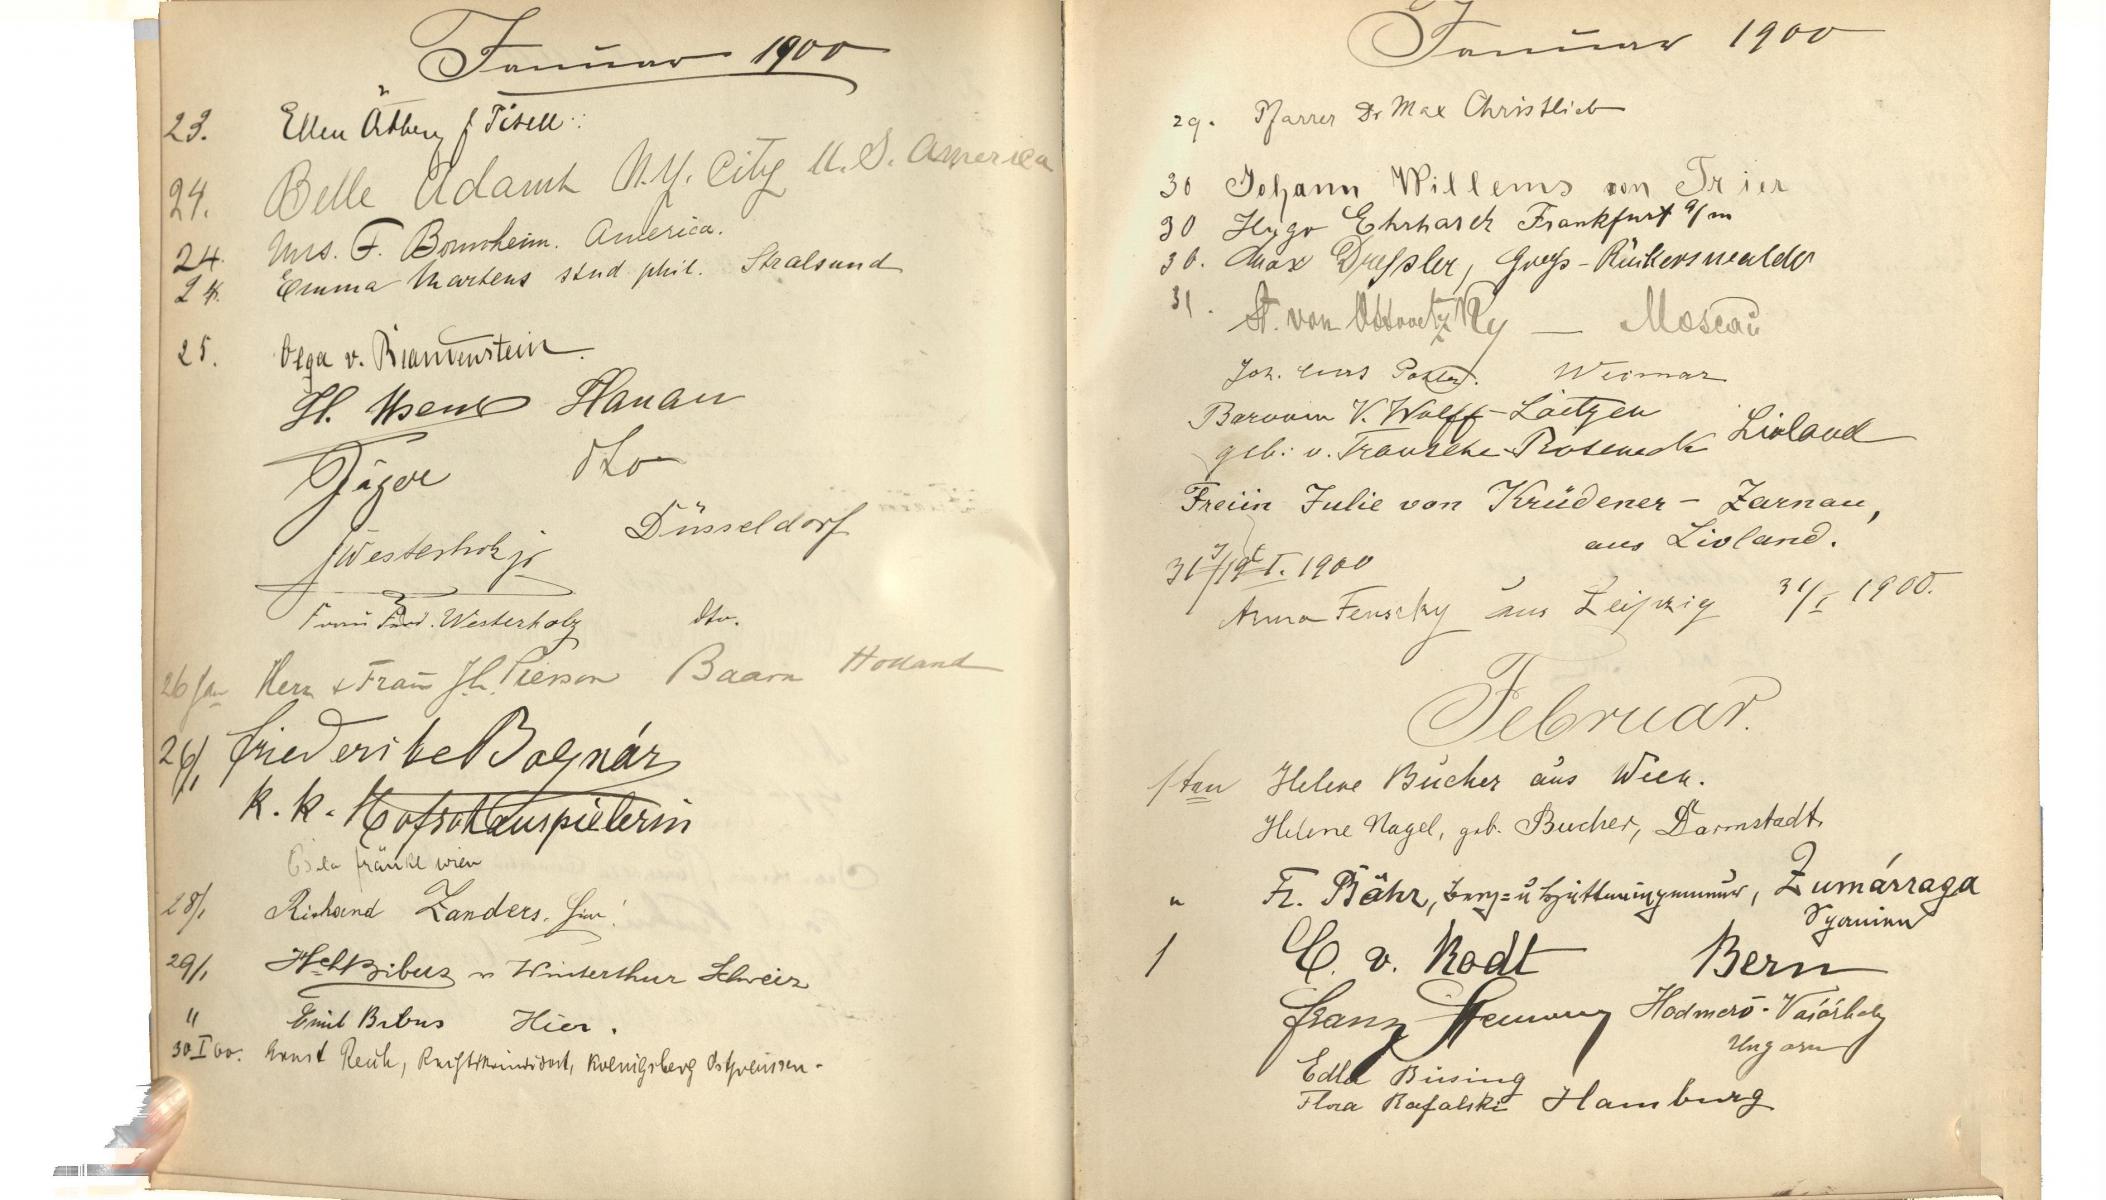 Januar 1900
23. Ellen
24. Belle Adams N.Y. City U.S. America
24. Mrs. F. Bornheim. America.
24. Emma Martens stud. phil. Stralsund
25. Olga v. Brandenstein
H. Hanau
Jäger dto
Westerholz jr Düsseldorf
Frau Ferd. Westerholz dto.
26 Jan Herr & Frau J.L. Pierson Baarn Holland
26/1 Friederike Bognár
k. k. Hofschauspielerin
Fränkl Wien
28/1 Richard Zanders.
29/1 Bibus Winterthur Schweiz
" Emil Bibus Hier.
30 I 00. Ernst Reich, Rechtskandidat, Koenigsberg Ostpreussen.
Januar 1900
29. Pfarrer Dr Max Christlieb
30 Johann Willems von Trier
30 Hugo Ehrhardt Frankfurt a/m
30. Max Dressler, Gross-Rückerswalde
31. St. von Ossovetzky — Moscau
Joh. Weimar
Baronin v. Wolff-
geb: v. Transehe-Roseneck Livland
Freiin Julie von Krüdener-Zarnau,
aus Livland.
I. 1900
Anna aus Leipzig 31/I 1900.
Februar.
1ten Helene Bucher aus Wien.
Helene Nagel, geb. Bucher, Darmstadt
" Fr. Bähr, Berg= u Hütteningenieur, Zumárraga
Spanien
1 C. v. Rodt Bern
Franz Hodmezö-Vásárhely
Ungarn
Edla Büsing
Flora Rafalski Hamburg